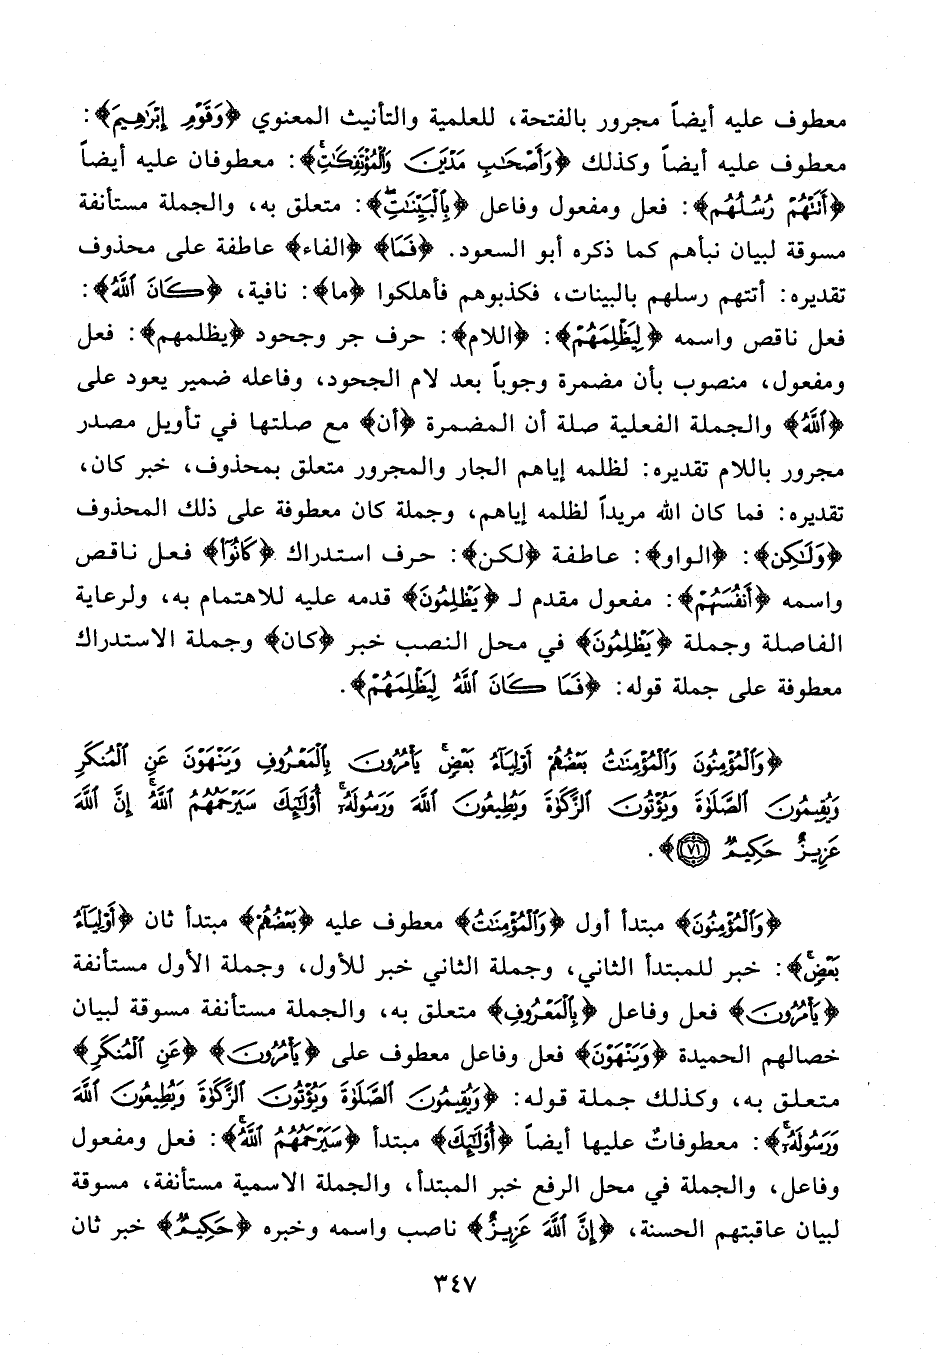 معطوف عليه أيضاً مجرور بالفتحة، للعلمية والتأنيث المعنوي ﴿وَقَوْمِ إِبْرَٰهِيمَ﴾:
معطوف عليه أيضاً وكذلك ﴿وَأَصْحَٰبِ مَدْيَنَ وَٱلْمُؤْتَفِكَٰتِۚ﴾: معطوفان عليه أيضاً
﴿أَتَتْهُمْ رُسُلُهُم﴾: فعل ومفعول وفاعل ﴿بِٱلْبَيِّنَٰتِۖ﴾: متعلق به، والجملة مستأنفة
مسوقة لبيان نبأهم كما ذكره أبو السعود. ﴿فَمَا﴾ ﴿الفاء﴾ عاطفة على محذوف
تقديره: أتتهم رسلهم بالبينات، فكذبوهم فأهلكوا ﴿ما﴾: نافية، ﴿كَانَ ٱللَّهُ﴾:
فعل ناقص واسمه ﴿لِيَظْلِمَهُمْ﴾: ﴿اللام﴾: حرف جر وجحود ﴿يظلمهم﴾: فعل
ومفعول، منصوب بأن مضمرة وجوباً بعد لام الجحود، وفاعله ضمير يعود على
﴿ٱللَّهُ﴾ والجملة الفعلية صلة أن المضمرة ﴿أن﴾ مع صلتها في تأويل مصدر
مجرور باللام تقديره: لظلمه إياهم الجار والمجرور متعلق بمحذوف، خبر كان،
تقديره: فما كان الله مريداً لظلمه إياهم، وجملة كان معطوفة على ذلك المحذوف
﴿وَلَٰكِن﴾: ﴿الواو﴾: عاطفة ﴿لكن﴾: حرف استدراك ﴿كَانُوٓا۟﴾ فعل ناقص
واسمه ﴿أَنفُسَهُمْ﴾: مفعول مقدم لـ ﴿يَظْلِمُونَ﴾ قدمه عليه للاهتمام به، ولرعاية
الفاصلة وجملة ﴿يَظْلِمُونَ﴾ في محل النصب خبر ﴿كان﴾ وجملة الاستدراك
معطوفة على جملة قوله: ﴿فَمَا كَانَ ٱللَّهُ لِيَظْلِمَهُمْ﴾.
﴿وَٱلْمُؤْمِنُونَ وَٱلْمُؤْمِنَٰتُ بَعْضُهُمْ أَوْلِيَآءُ بَعْضٍۚ يَأْمُرُونَ بِٱلْمَعْرُوفِ وَيَنْهَوْنَ عَنِ ٱلْمُنكَرِ
وَيُقِيمُونَ ٱلصَّلَوٰةَ وَيُؤْتُونَ ٱلزَّكَوٰةَ وَيُطِيعُونَ ٱللَّهَ وَرَسُولَهُۥٓۚ أُو۟لَٰٓئِكَ سَيَرْحَمُهُمُ ٱللَّهُۗ إِنَّ ٱللَّهَ
عَزِيزٌ حَكِيمٌ ٧١﴾.
﴿وَٱلْمُؤْمِنُونَ﴾ مبتدأ أول ﴿وَٱلْمُؤْمِنَٰتُ﴾ معطوف عليه ﴿بَعْضُهُمْ﴾ مبتدأ ثان ﴿أَوْلِيَآءُ
بَعْضٍۚ﴾: خبر للمبتدأ الثاني، وجملة الثاني خبر للأول، وجملة الأول مستأنفة
﴿يَأْمُرُونَ﴾ فعل وفاعل ﴿بِٱلْمَعْرُوفِ﴾ متعلق به، والجملة مستأنفة مسوقة لبيان
خصالهم الحميدة ﴿وَيَنْهَوْنَ﴾ فعل وفاعل معطوف على ﴿يَأْمُرُونَ﴾ ﴿عَنِ ٱلْمُنكَرِ﴾
متعلق به، وكذلك جملة قوله: ﴿وَيُقِيمُونَ ٱلصَّلَوٰةَ وَيُؤْتُونَ ٱلزَّكَوٰةَ وَيُطِيعُونَ ٱللَّهَ
وَرَسُولَهُۥٓۚ﴾: معطوفاتٌ عليها أيضاً ﴿أُو۟لَٰٓئِكَ﴾ مبتدأ ﴿سَيَرْحَمُهُمُ ٱللَّهُۗ﴾: فعل ومفعول
وفاعل، والجملة في محل الرفع خبر المبتدأ، والجملة الاسمية مستأنفة، مسوقة
لبيان عاقبتهم الحسنة، ﴿إِنَّ ٱللَّهَ عَزِيزٌ﴾ ناصب واسمه وخبره ﴿حَكِيمٌ﴾ خبر ثان
٣٤٧